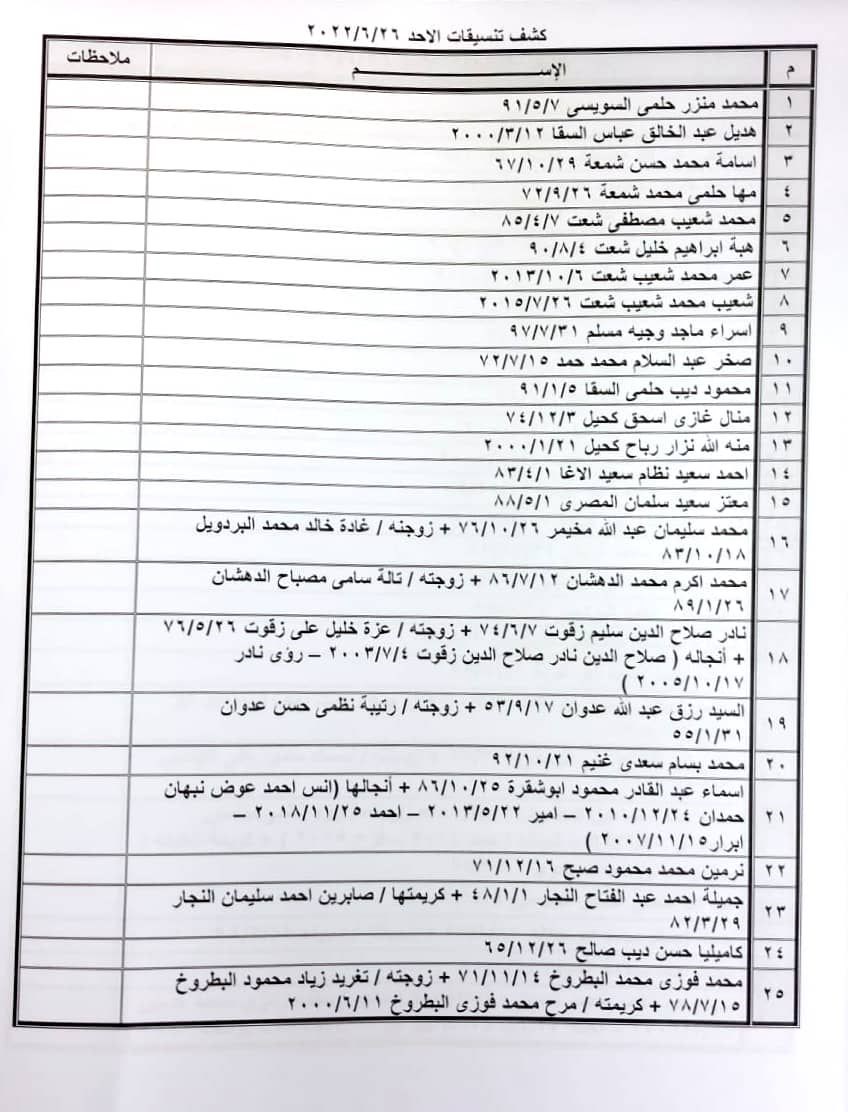 كشف تنسيقات الاحد ٢٠٢٢/٦/٢٦
م الإســـــــــــــم ملاحظات
١ محمد منزر حلمى السويسى ٩١/٥/٧
٢ هديل عبد الخالق عباس السقا ٢٠٠٠/٣/١٢
٣ اسامة محمد حسن شمعة ٦٧/١٠/٢٩
٤ مها حلمى محمد شمعة ٧٢/٩/٢٦
٥ محمد شعيب مصطفى شعت ٨٥/٤/٧
٦ هبة ابراهيم خليل شعت ٩٠/٨/٤
٧ عمر محمد شعيب شعت ٢٠١٣/١٠/٦
٨ شعيب محمد شعيب شعت ٢٠١٥/٧/٢٦
٩ اسراء ماجد وجيه مسلم ٩٧/٧/٣١
١٠ صخر عبد السلام محمد حمد ٧٢/٧/١٥
١١ محمود ديب حلمى السقا ٩١/١/٥
١٢ منال غازى اسحق كحيل ٧٤/١٢/٣
١٣ منه الله نزار رباح كحيل ٢٠٠٠/١/٢١
١٤ احمد سعيد نظام سعيد الاغا ٨٣/٤/١
١٥ معتز سعيد سلمان المصرى ٨٨/٥/١
١٦ محمد سليمان عبد الله مخيمر ٧٦/١٠/٢٦ + زوجته / غادة خالد محمد البردويل
٨٣/١٠/١٨
١٧ محمد اكرم محمد الدهشان ٨٦/٧/١٢ + زوجته / تالة سامى مصباح الدهشان
٨٩/١/٢٦
١٨ نادر صلاح الدين سليم زقوت ٧٤/٦/٧ + زوجته / عزة خليل على زقوت ٧٦/٥/٢٦
+ أنجاله ( صلاح الدين نادر صلاح الدين زقوت ٢٠٠٣/٧/٤ – رؤى نادر
٢٠٠٥/١٠/١٧ )
١٩ السيد رزق عبد الله عدوان ٥٣/٩/١٧ + زوجته / رتيبة نظمى حسن عدوان
٥٥/١/٣١
٢٠ محمد بسام سعدى غنيم ٩٢/١٠/٢١
٢١ اسماء عبد القادر محمود ابوشقرة ٨٦/١٠/٢٥ + أنجالها (انس احمد عوض نبهان
حمدان ٢٠١٠/١٢/٢٤ – امير ٢٠١٣/٥/٢٢ – احمد ٢٠١٨/١١/٢٥ –
ابرار٢٠٠٧/١١/١٥ )
٢٢ نرمين محمد محمود صبح ٧١/١٢/١٦
٢٣ جميلة احمد عبد الفتاح النجار ٤٨/١/١ + كريمتها / صابرين احمد سليمان النجار
٨٢/٣/٢٩
٢٤ كاميليا حسن ديب صالح ٦٥/١٢/٢٦
٢٥ محمد فوزى محمد البطروخ ٧١/١١/١٤ + زوجته / تغريد زياد محمود البطروخ
٧٨/٧/١٥ + كريمته / مرح محمد فوزى البطروخ ٢٠٠٠/٦/١١